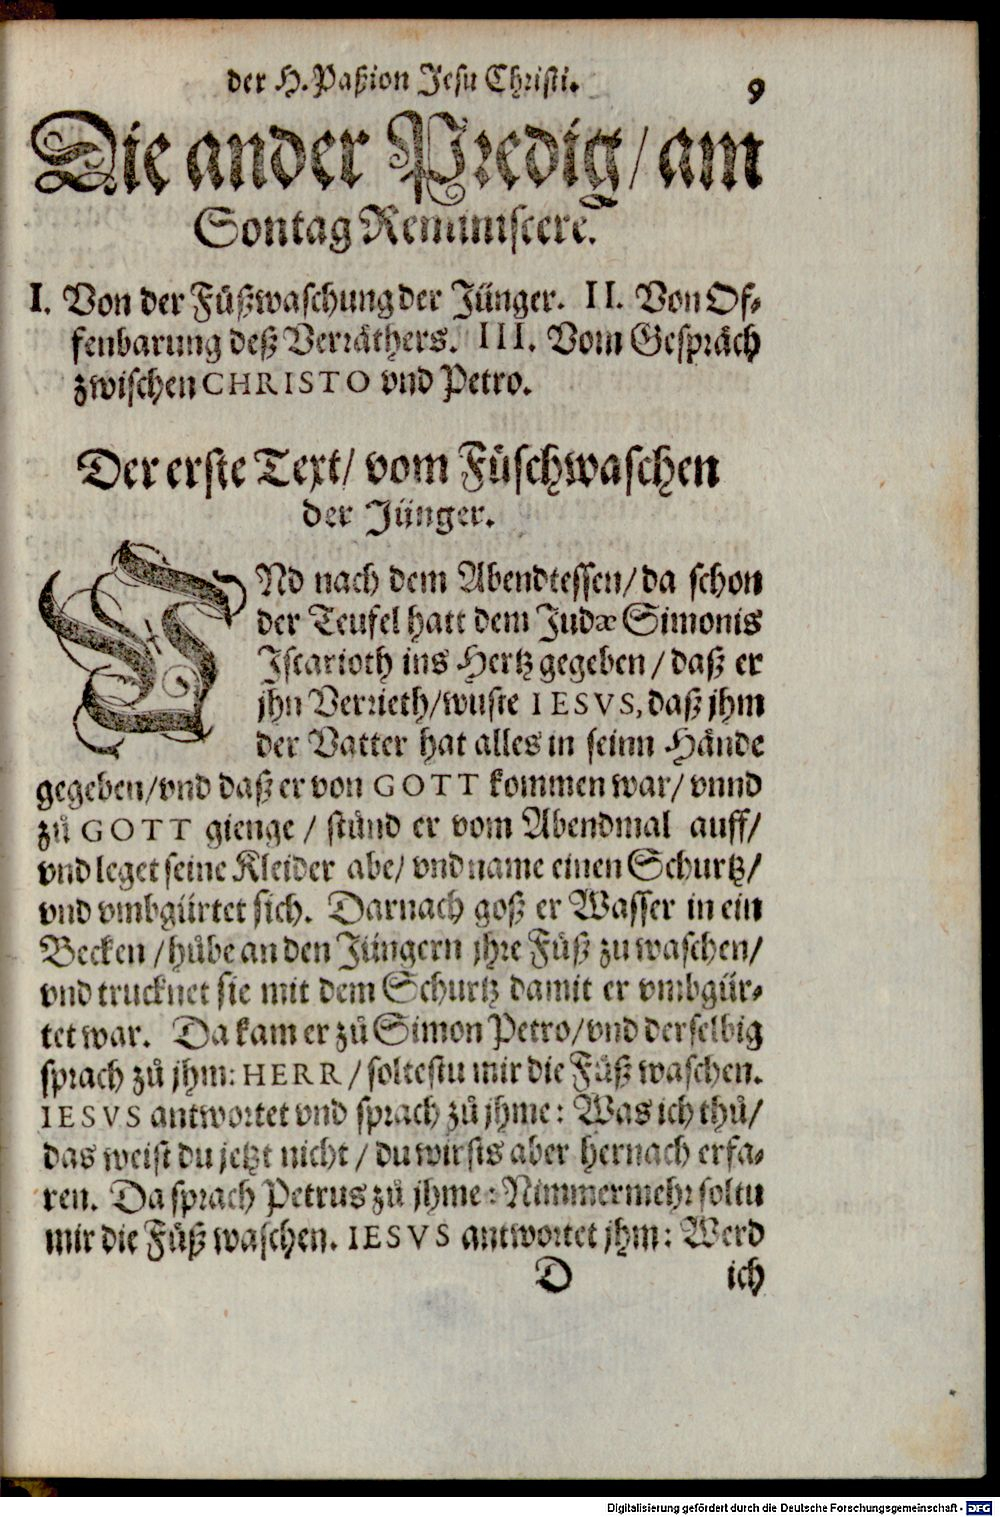 der H. Paßion Jesu Christi. 9
Die ander Predig / am
Sontag Reminiscere.
I. Von der Füßwaschung der Jünger. II. Von Of-
fenbarung deß Verräthers. III. Vom Gespräch
zwischen CHRISTO vnd Petro.
Der erste Text / vom Füschwaschen
der Jünger.
VNd nach dem Abendtessen / da schon
der Teufel hatt dem Judæ Simonis
Iscarioth ins Hertz gegeben / daß er
jhn Verrieth / wuste IESVS, daß jhm
der Vatter hat alles in seinn Hände
gegeben / vnd daß er von GOTT kommen war / vnnd
zů GOTT gienge / stůnd er vom Abendmal auff /
vnd leget seine Kleider abe / vnd name einen Schurtz /
vnd vmbgürtet sich. Darnach goß er Wasser in ein
Becken / hůbe an den Jüngern jhre Füß zu waschen /
vnd trucknet sie mit dem Schurtz damit er vmbgür-
tet war. Da kam er zů Simon Petro / vnd derselbig
sprach zů jhm: HERR / soltestu mir die Füß waschen.
IESVS antwortet vnd sprach zů jhme: Was ich thů /
das weist du jetzt nicht / du wirsts aber hernach erfa-
ren. Da sprach Petrus zů jhme: Nimmermehr soltu
mir die Füß waschen. IESVS antwortet jhm: Werd
D ich
Digitalisierung gefördert durch die Deutsche Forschungsgemeinschaft - DFG